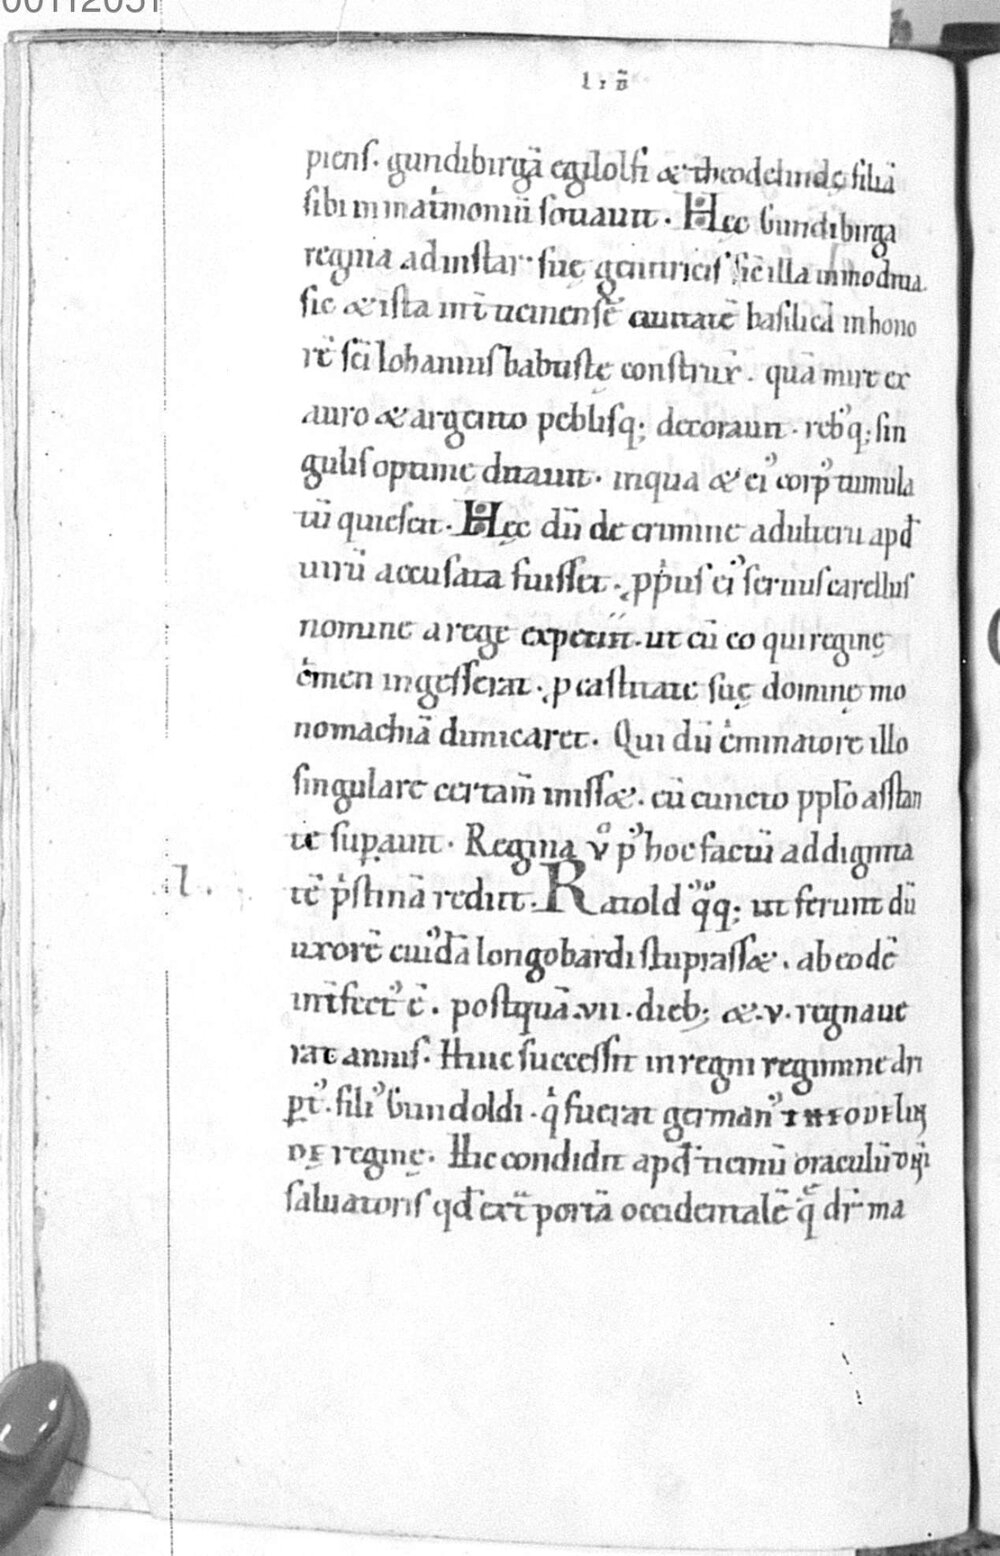 00112051
piens. gundibirgā egilolfi & theodelindę filiā
sibi in matͥmoniū sociauit. Hęc Gundibirga
regina ad instar suę genitricis sic̄ illa in modicia.
sic & ista int̄ ticinensē ciuitatē basilicā in hono
rē sc̄i Iohannis babtistę construx̄. quā mire ex
auro & argento peblisq; decorauit. rebꝰq; sin
gulis optime ditauit. in qua & eiꝰ corpꝰ tumula
tū quiescit. Hęc dū de crimine adulterii apd̄
uirū accusata fuisset. ꝓpͥus eiꝰ seruus carellus
nomine a rege expetiit. ut cū eo qui reginę
cͥmen ingesserat. ꝓ castitate suę dominę mo
nomachiā dimicaret. Qui dū cͥminatore illo
singulare certam̄ inisset. cū cuncto ppl̄o asstan
te suꝑauit. Regina v̊ pꝰ hoc factū ad dignita
tē pͥstinā rediit. Ratold ꝰqͦq; ut ferunt dū
l.
uxorē cuiꝰdā longobardi stuprass&. ab eodē
int̄fectꝰ ē. postquā .vii. dieb; &.v. regnaue
rat annis. Huic successit in regni regimine ari
ꝑtꝰ. filiꝰ Gundoldi. qͥ fuerat germanꝰ THEODELIN
DĘ reginę. Hic condidit apd̄ ticinū oraculū dn̄i
saluatoris qd̄ ext̄ portā occidentalē q̄ dr̄ ma